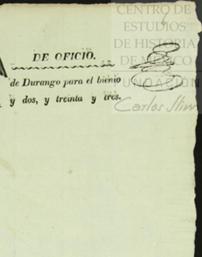 CENTRO DE
ESTUDIOS
DE HISTORIA
DE MÉXICO
FUNDACIÓN
Carlos Slim
DE OFICIO.
de Durango para el bienio
y dos, y treinta y tres.